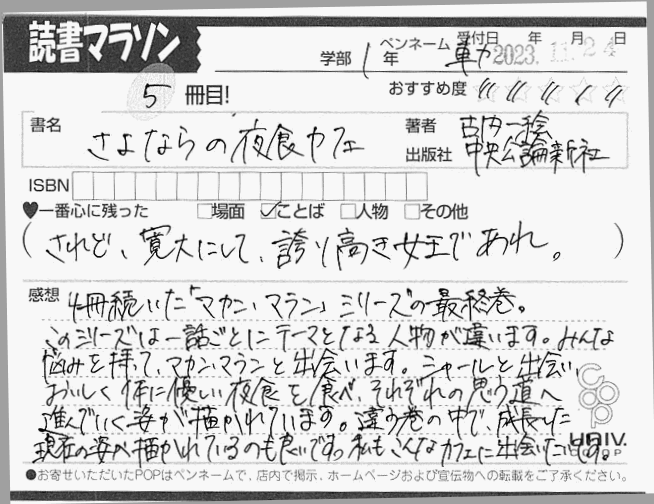 読書マラソン
学部 1年 ペンネーム 動 受付日 年 月 日
2023.11.24
5 冊目! おすすめ度 ☆☆☆☆☆
書名 さよならの夜食カフェ 著者 古内一絵
出版社 中央公論新社
ISBN
♥一番心に残った □場面 ☑ことば □人物 □その他
(されど、寛大にして、誇り高き女王であれ。)
感想 4冊続いた「マカン・マラン」シリーズの最終巻。
このシリーズは一話ごとにテーマとなる人物が違います。みんな
悩みを持って、マカンマランと出会います。シャールと出会い、
おいしく体に優しい夜食を食べ、それぞれの思う道へ
進んでいく姿が描かれています。違う巻の中で、成長した
現在の姿へ描かれているのも良いです。私もこんなカフェに出会いたいです。
coop
UNIV.
CO-OP
●お寄せいただいたPOPはペンネームで、店内で掲示、ホームページおよび宣伝物への転載をご了承ください。